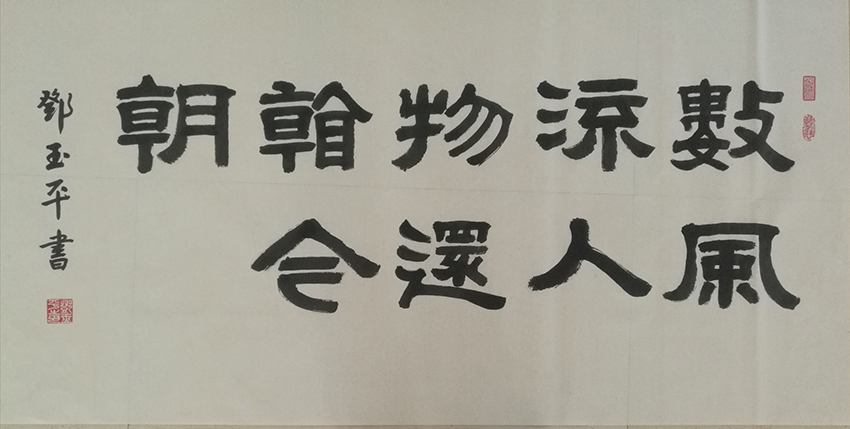 數風
流人
物還
看今
朝
鄧玉平書